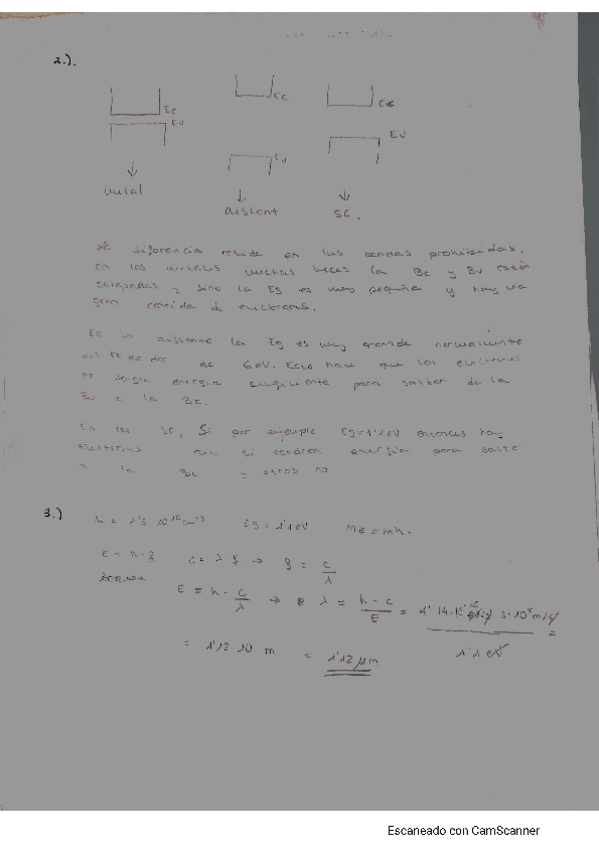 2.).
Ec
Ec
Ec
Ev
Ev
Ev
metal
aislant
SC.
La diferencia reside en las bandas prohibidas.
En los metales muchas veces la Bc y Bv están
solapadas y sino la Eg es muy pequeña y hay una
gran corrida de electrones.
En un aislante la Eg es muy grande normalmente
de 6eV. Esto hace que los electrones
energía suficiente para saltar de la
Bv a la Bc.
En los SC, Si por ejemplo Eg=1'1eV entonces hay
electrones que si tendrán energía para saltar
a la Bc y otros no
3.)
n = 1'5 10^10 cm^-3 Eg = 1'1eV me = mh.
E = h · f c = λ f → f = c/λ
E = h · c/λ → λ = h · c / E = 4'14·10 3·10^8 m/s / 1'1 eV =
= 1'12 10 m = 1'12 μm
Escaneado con CamScanner